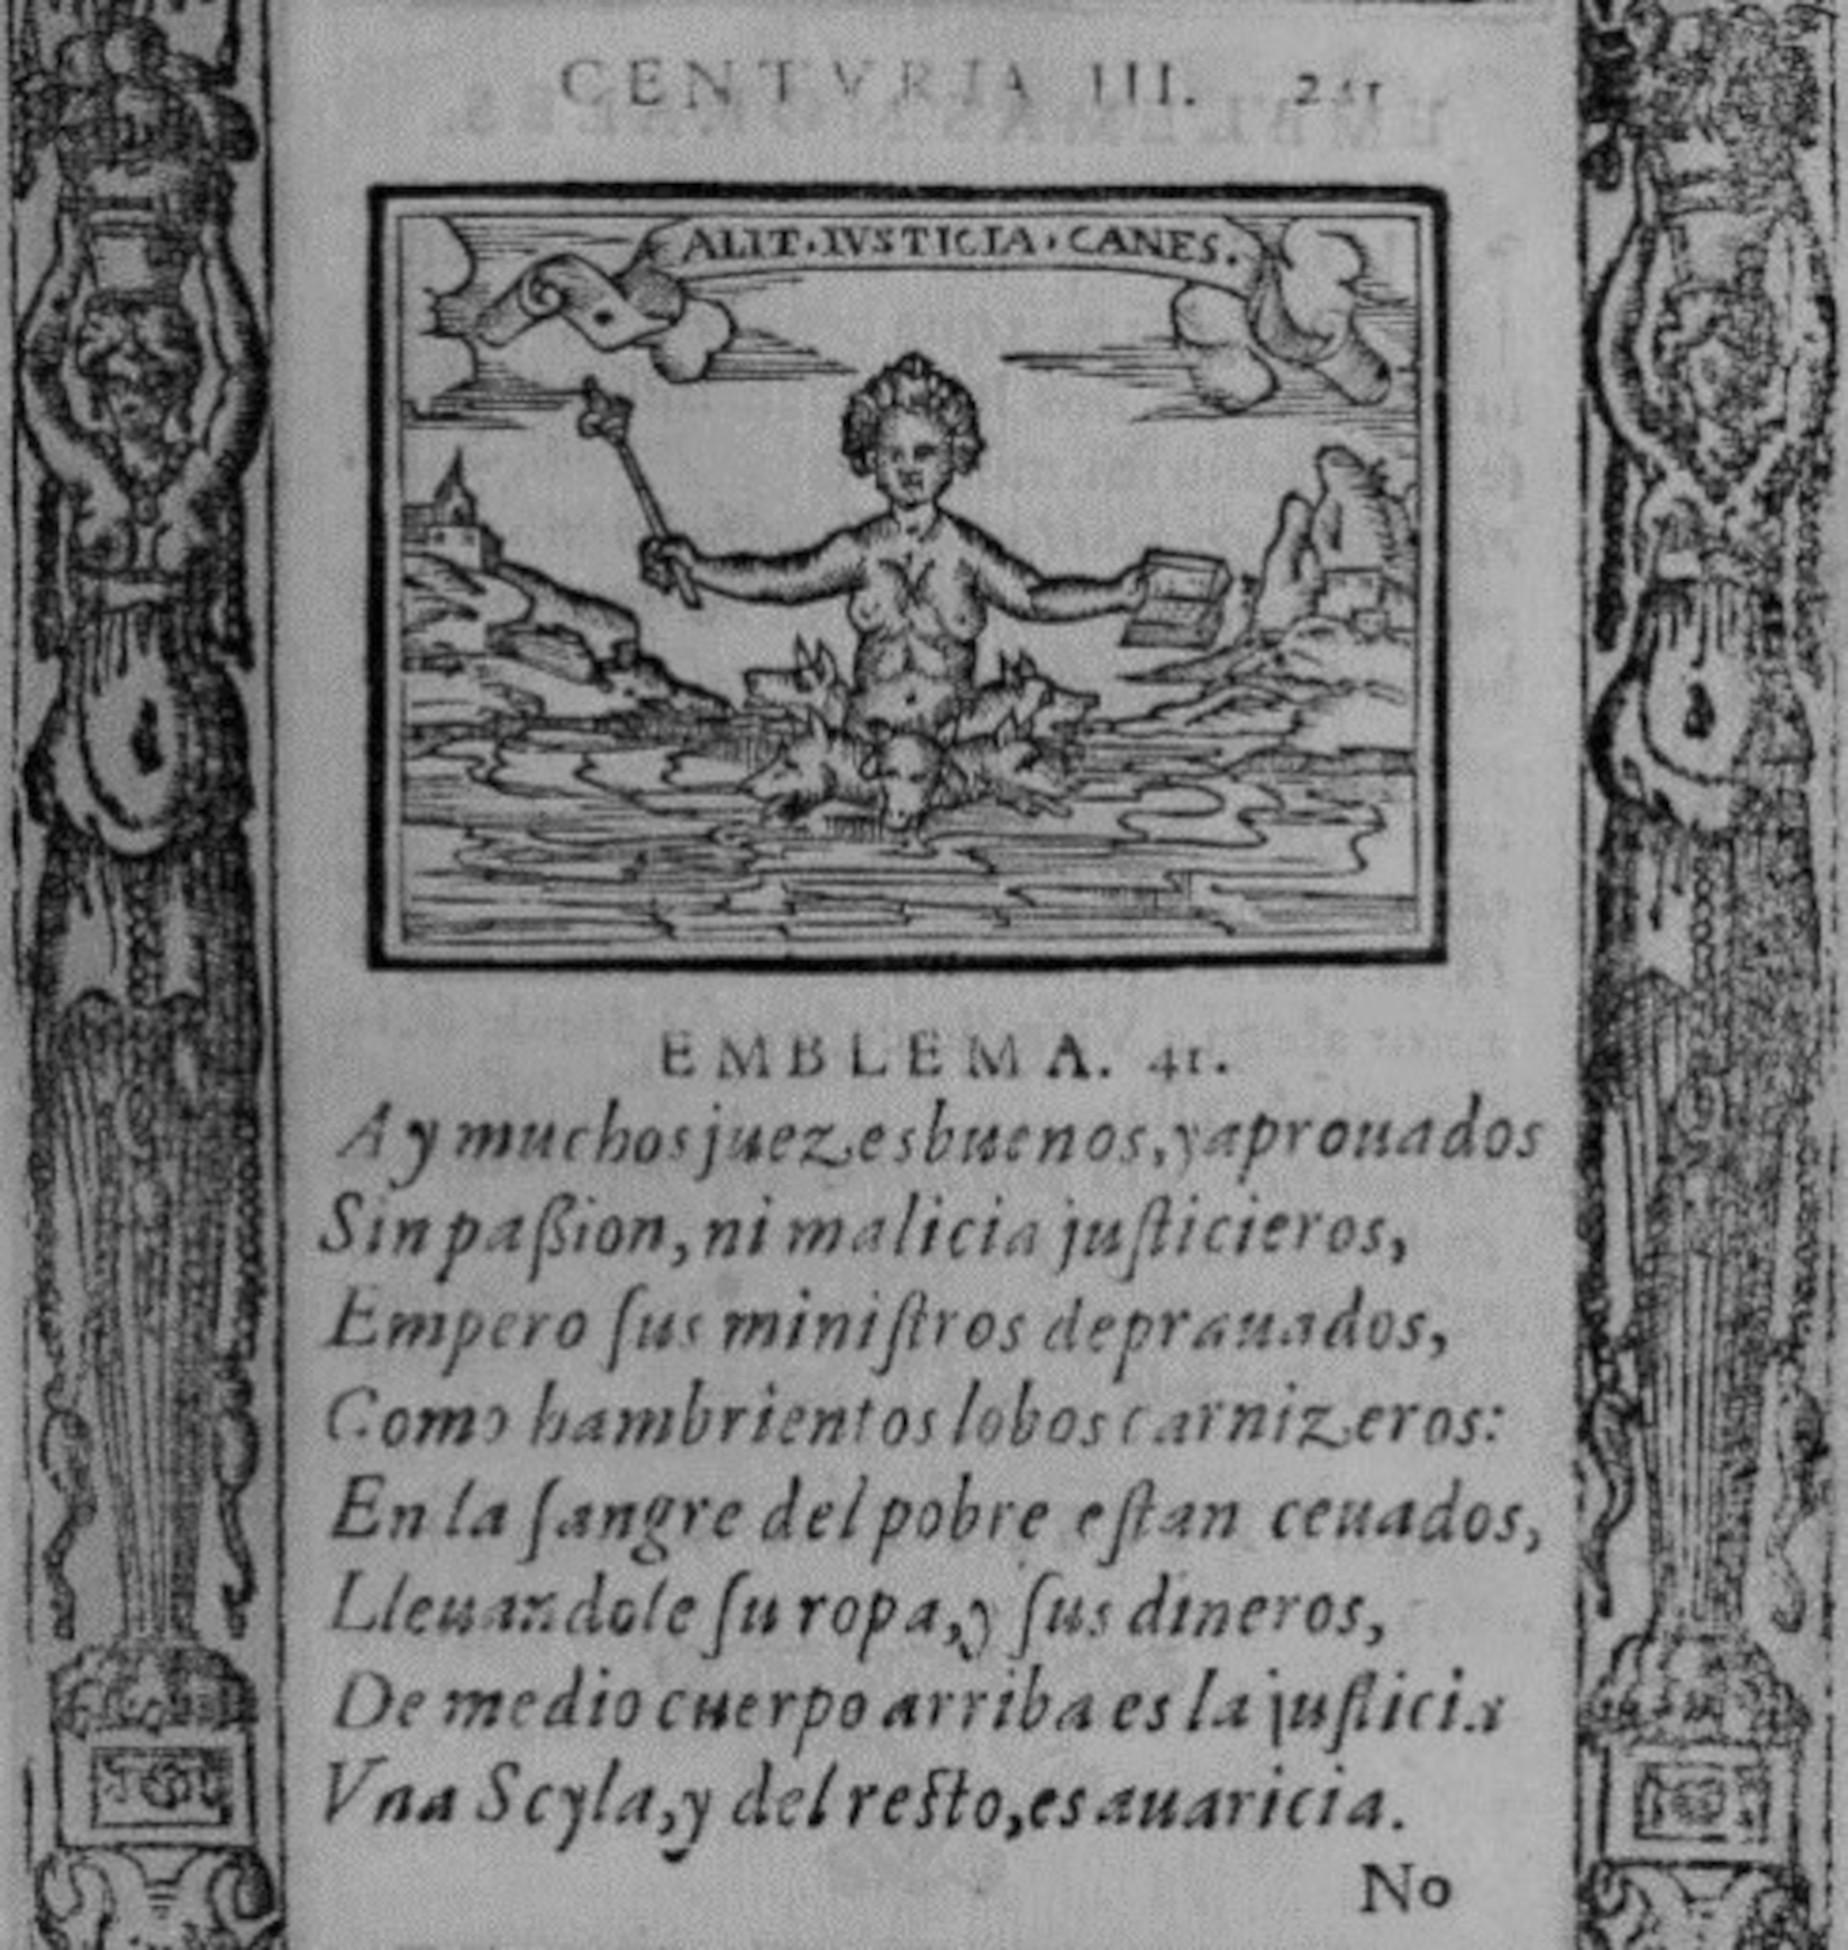 CENTVRIA III. 241
ALIT·IVSTICIA·CANES.
EMBLEMA. 41.
Ay muchos juezes buenos, y aprouados
Sin paßion, ni malicia juſticieros,
Empero ſus miniſtros deprauados,
Como hambrientos lobos carnizeros:
En la ſangre del pobre eſtan ceuados,
Lleuandole ſu ropa, y ſus dineros,
De medio cuerpo arriba es la juſticia
Vna Scyla, y del reſto, es auaricia.
No